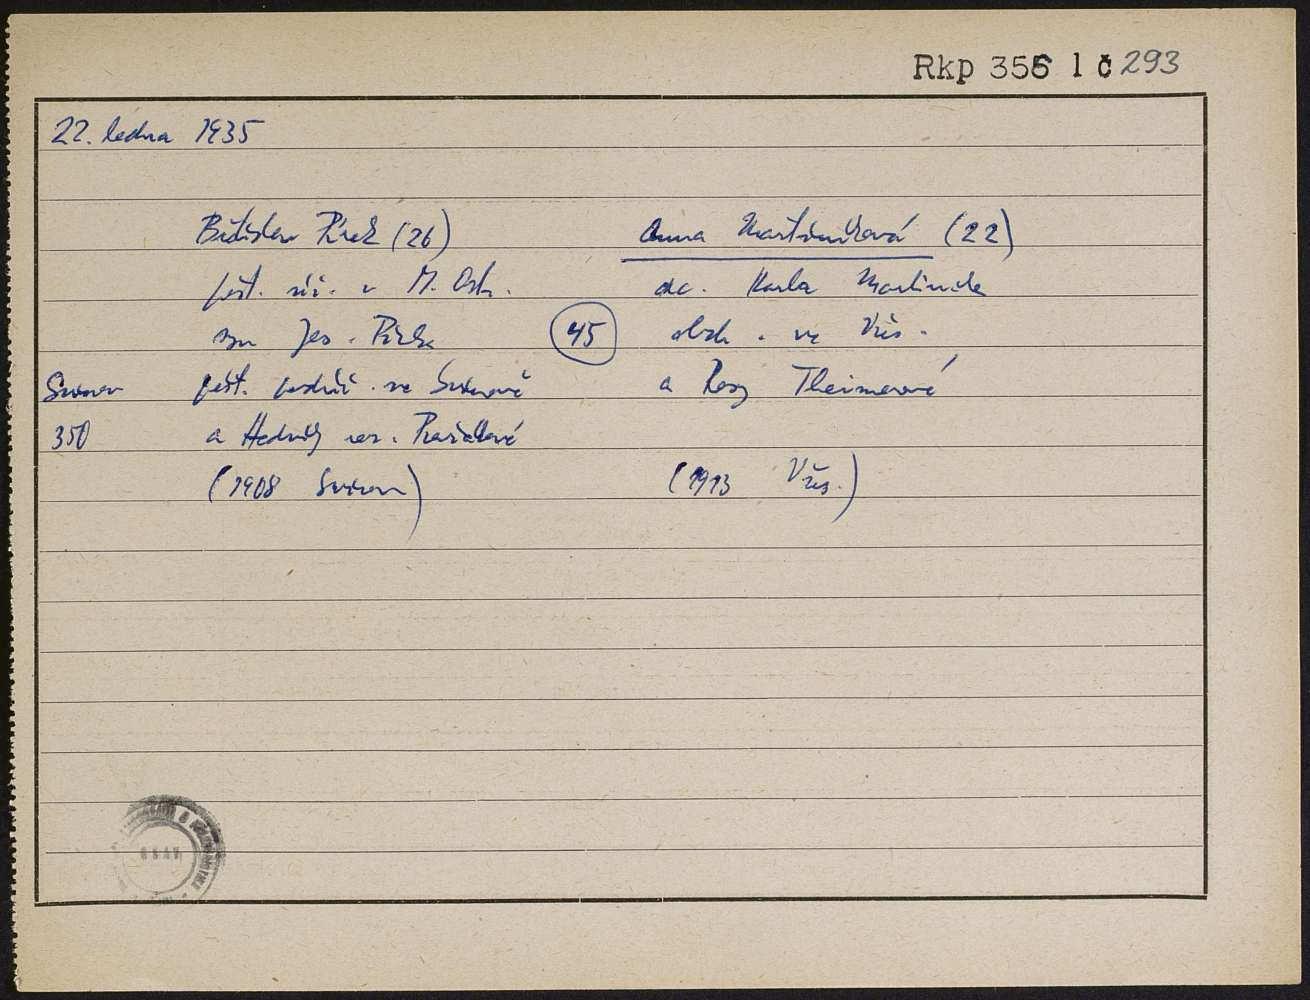 Rkp 356 1 č 293
22. ledna 1935
Břetislav Pírek (26) Anna Martínková (22)
pošt. úř. v M. Ostr. dc. Karla Martinka
syn Jos. Pírka 45 obch. ve Vřes.
Svinov pošt. podúř. ve Svinově a Rosy Theimerové
350 a Hedviky roz.
(1908 Svinov) (1913 Vřes.)